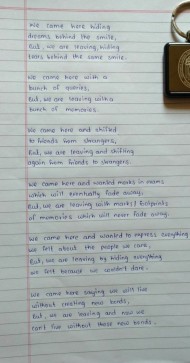 We came here hiding
dreams behind the smile,
But, we are leaving, hiding
tears behind the same smile.
We came here with a
bunch of worries,
But, we are leaving with a
bunch of memories.
We came here and shifted
to friends from strangers,
But, we are leaving and shifting
again from friends to strangers.
We came here and wanted marks in exams
which will eventually fade away,
But, we are leaving with marks / footprints
of memories which will never fade away.
We came here and wanted to express everything
we felt about the people we care,
But, we are leaving by hiding everything
we felt because we couldn't dare.
We came here saying we will live
without creating new bonds,
But, we are leaving and now we
can't live without those new bonds.